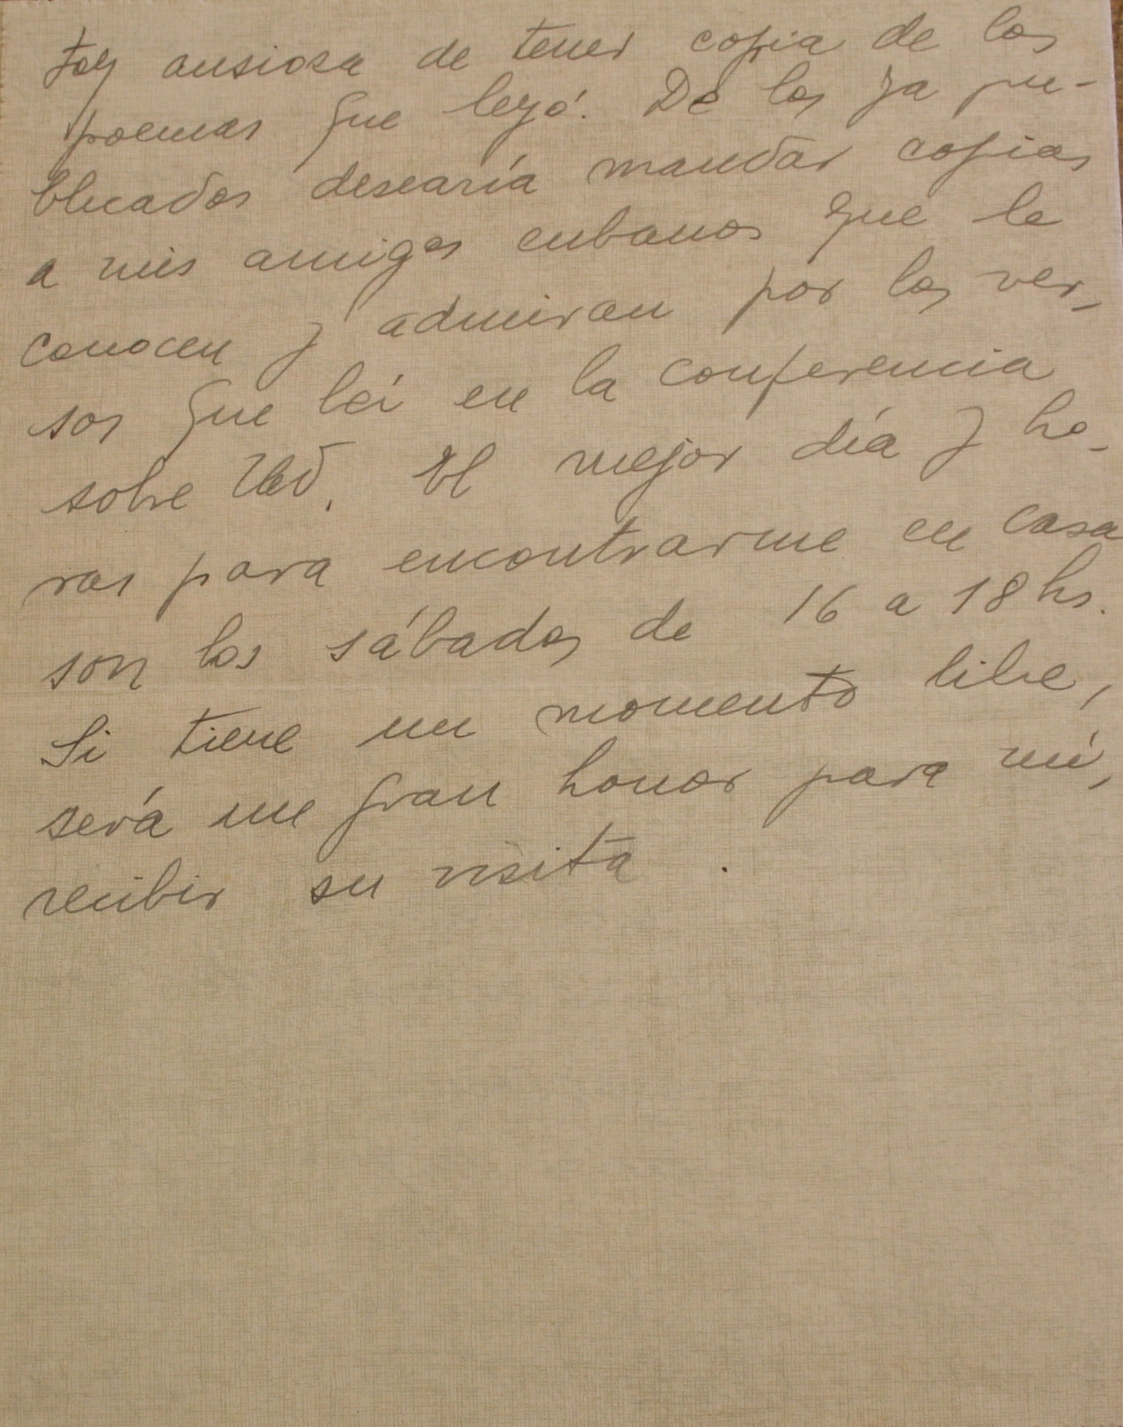 toy ansiosa de tener copia de los
poemas que leyó. De los ya pu-
blicados desearía mandar copias
a mis amigos cubanos que le
conocen y admiran por los ver-
sos que leí en la conferencia
sobre Ud. El mejor día y ho-
ras para encontrarme en casa
son los sábados de 16 a 18 hs.
Si tiene un momento libre,
será un gran honor para mí,
recibir su visita.